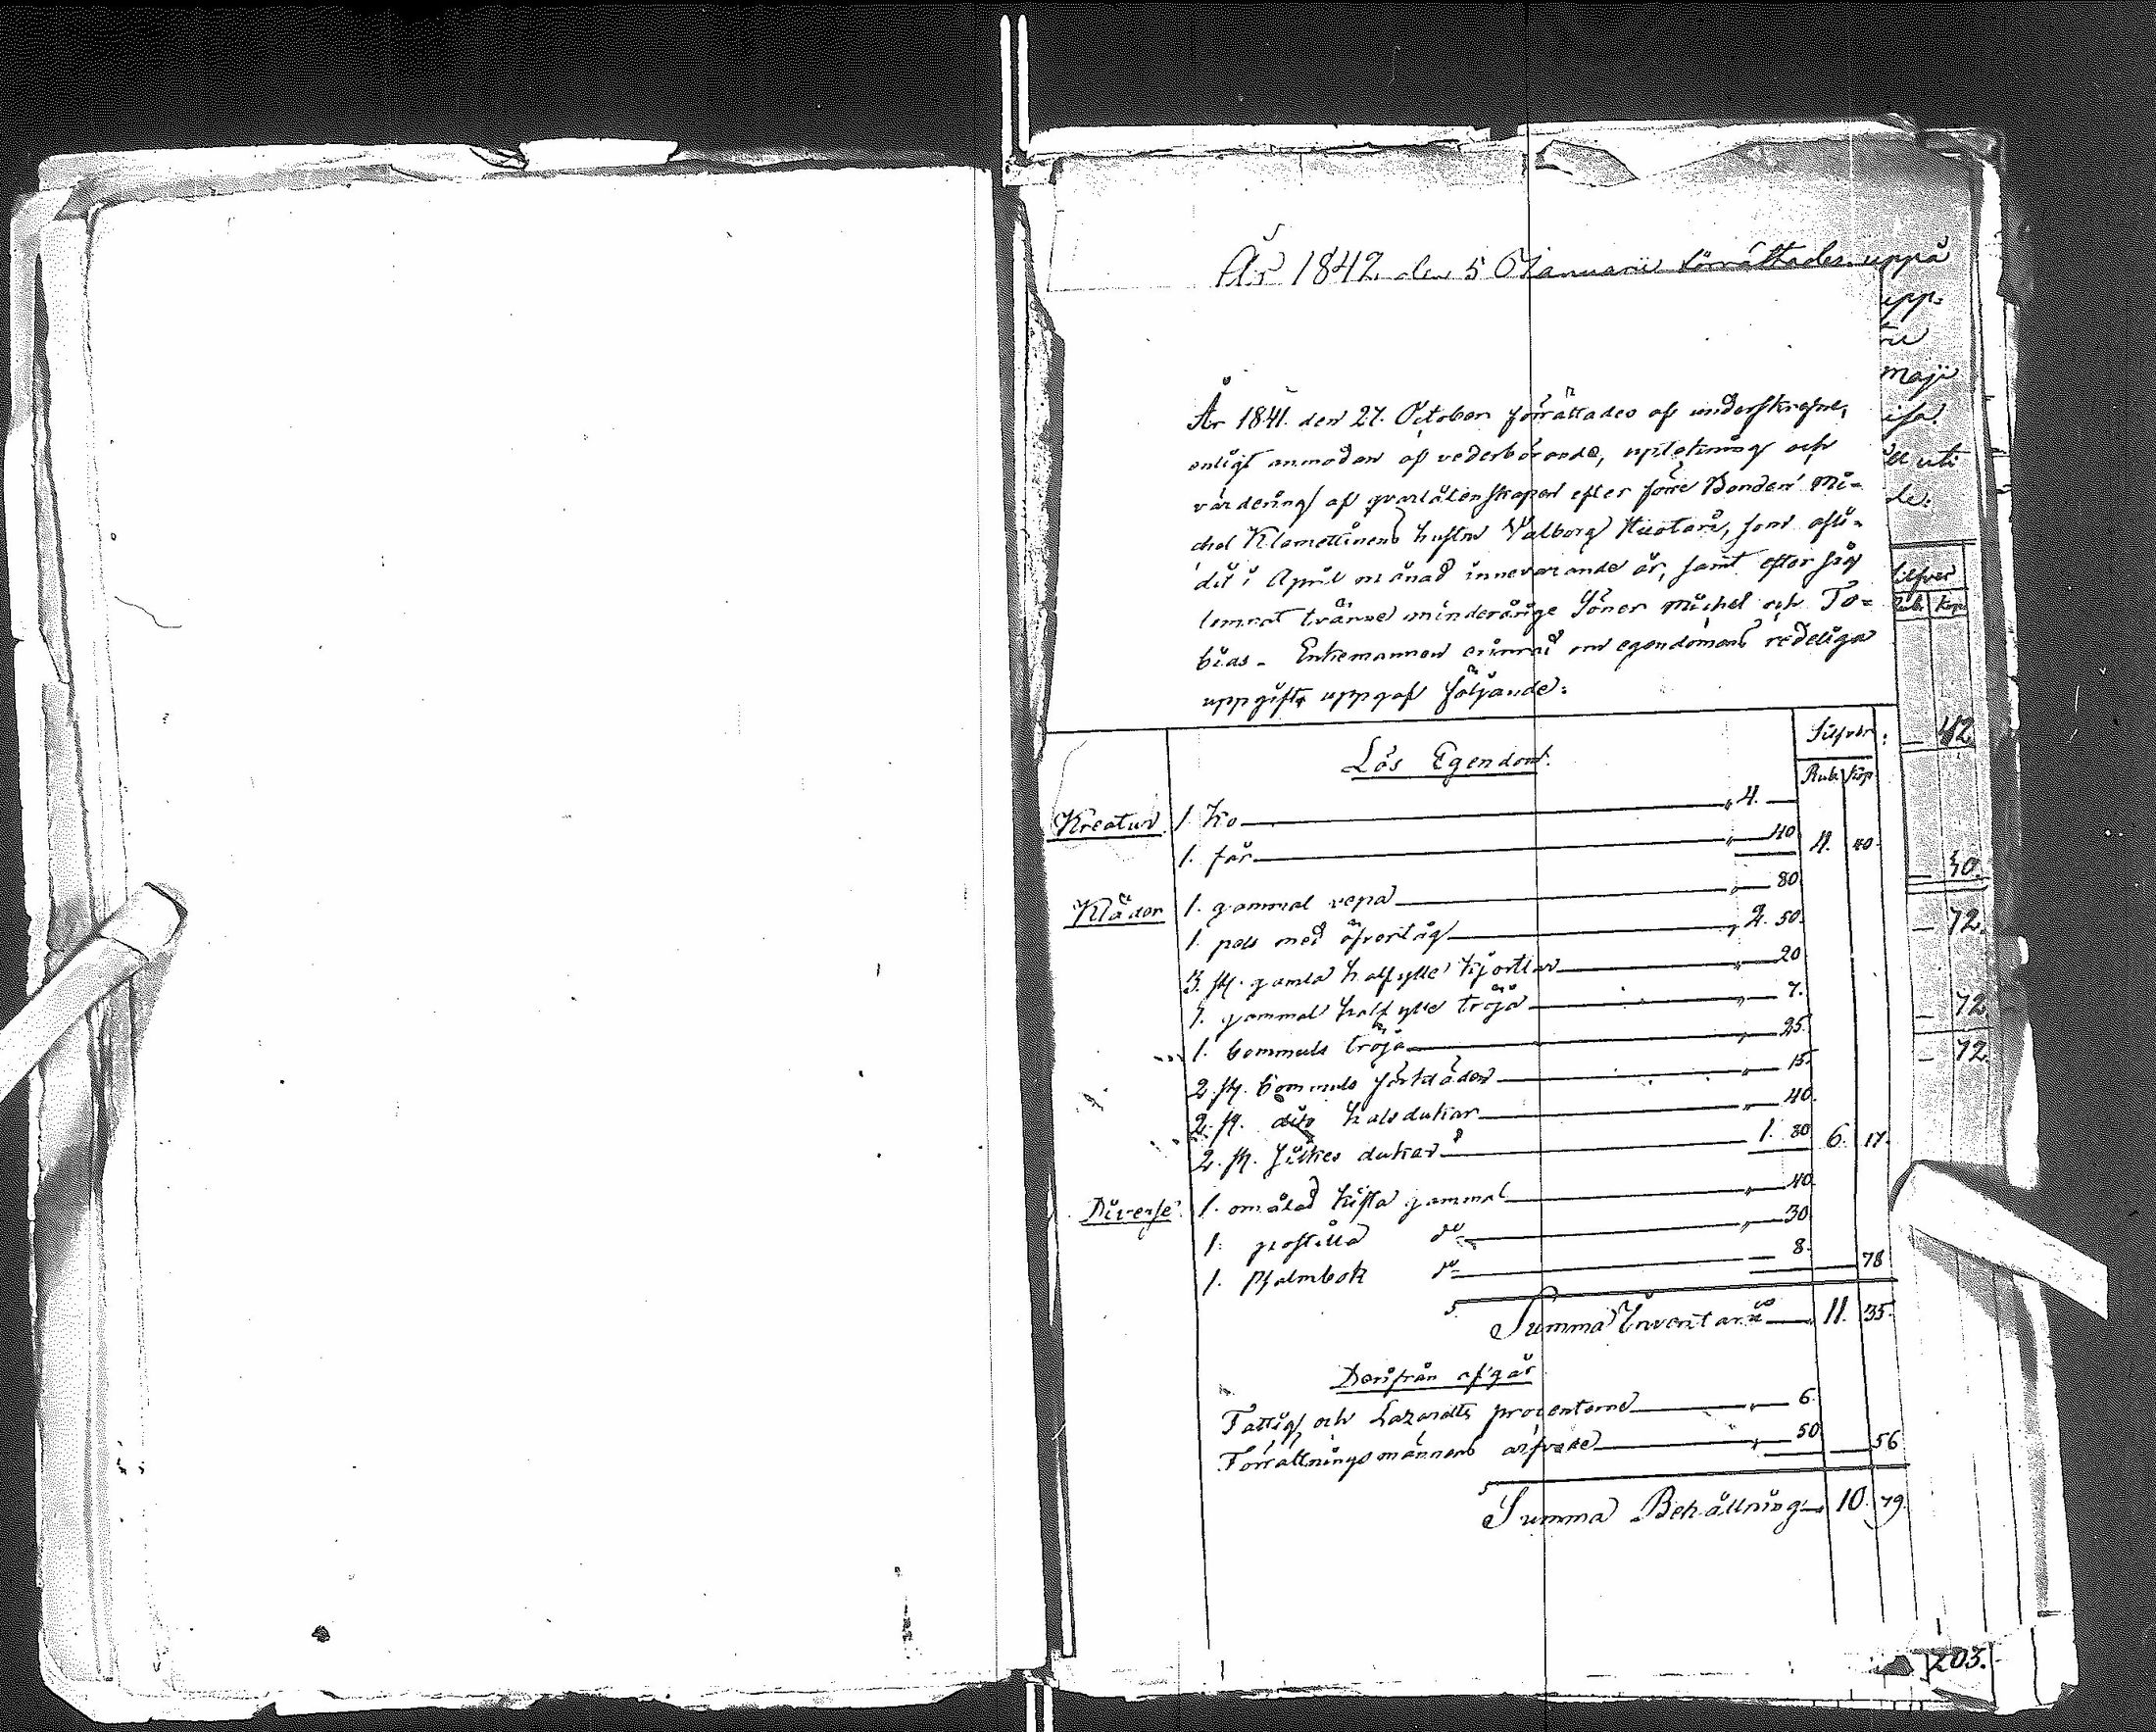 År 1842 den 5 Januarii förrättades uppå
upp-
maji
uti
År 1841. den 27. October förrättades af underskrefne,
enligt anmodan af vederbörande, upteckning och
värdering af qvarlåtenskapen efter förre Bonden Mi-
chel Klemettinens hustru Valborg Huotari, som afli-
dit i April månad innevarande år, samt efter sig
lemnat tvänne minderårige Söner Michel och To-
bias. Enkemannen erinrad om egendomens redeliga
uppgift, uppgaf följande:
Silfver
Rub. Kop.
Lös Egendom. Silfver:
Rub. Kop.
Kreatur 1. Ko „ 4. —
1. får „ 40 4. 40.
Kläder 1. gammal vepa „ 80
1. pels med öfvertåg „ 2. 50.
3. st. gamla halfylle kjortlar „ 20
1. gammal half ylle tröja „ 7.
1. bommuls tröja „ 25.
2. st. bommuls förkläden „ 15.
2. st. dito halsdukar „ 40.
2. st. silkes dukar 1. 80 6. 17.
Diverse 1. omålad kista gammal „ 40.
1. postilla do „ 30
1. Psalmbok do 8. 78
Summa Inventarii 11. 35.
Derifrån afgår
Fattig och Lazaretts procenterne „ 6.
Förrättningsmännens arfvode „ 50 56
Summa Behållning 10. 79.
42.
40.
72.
72.
72.
203.